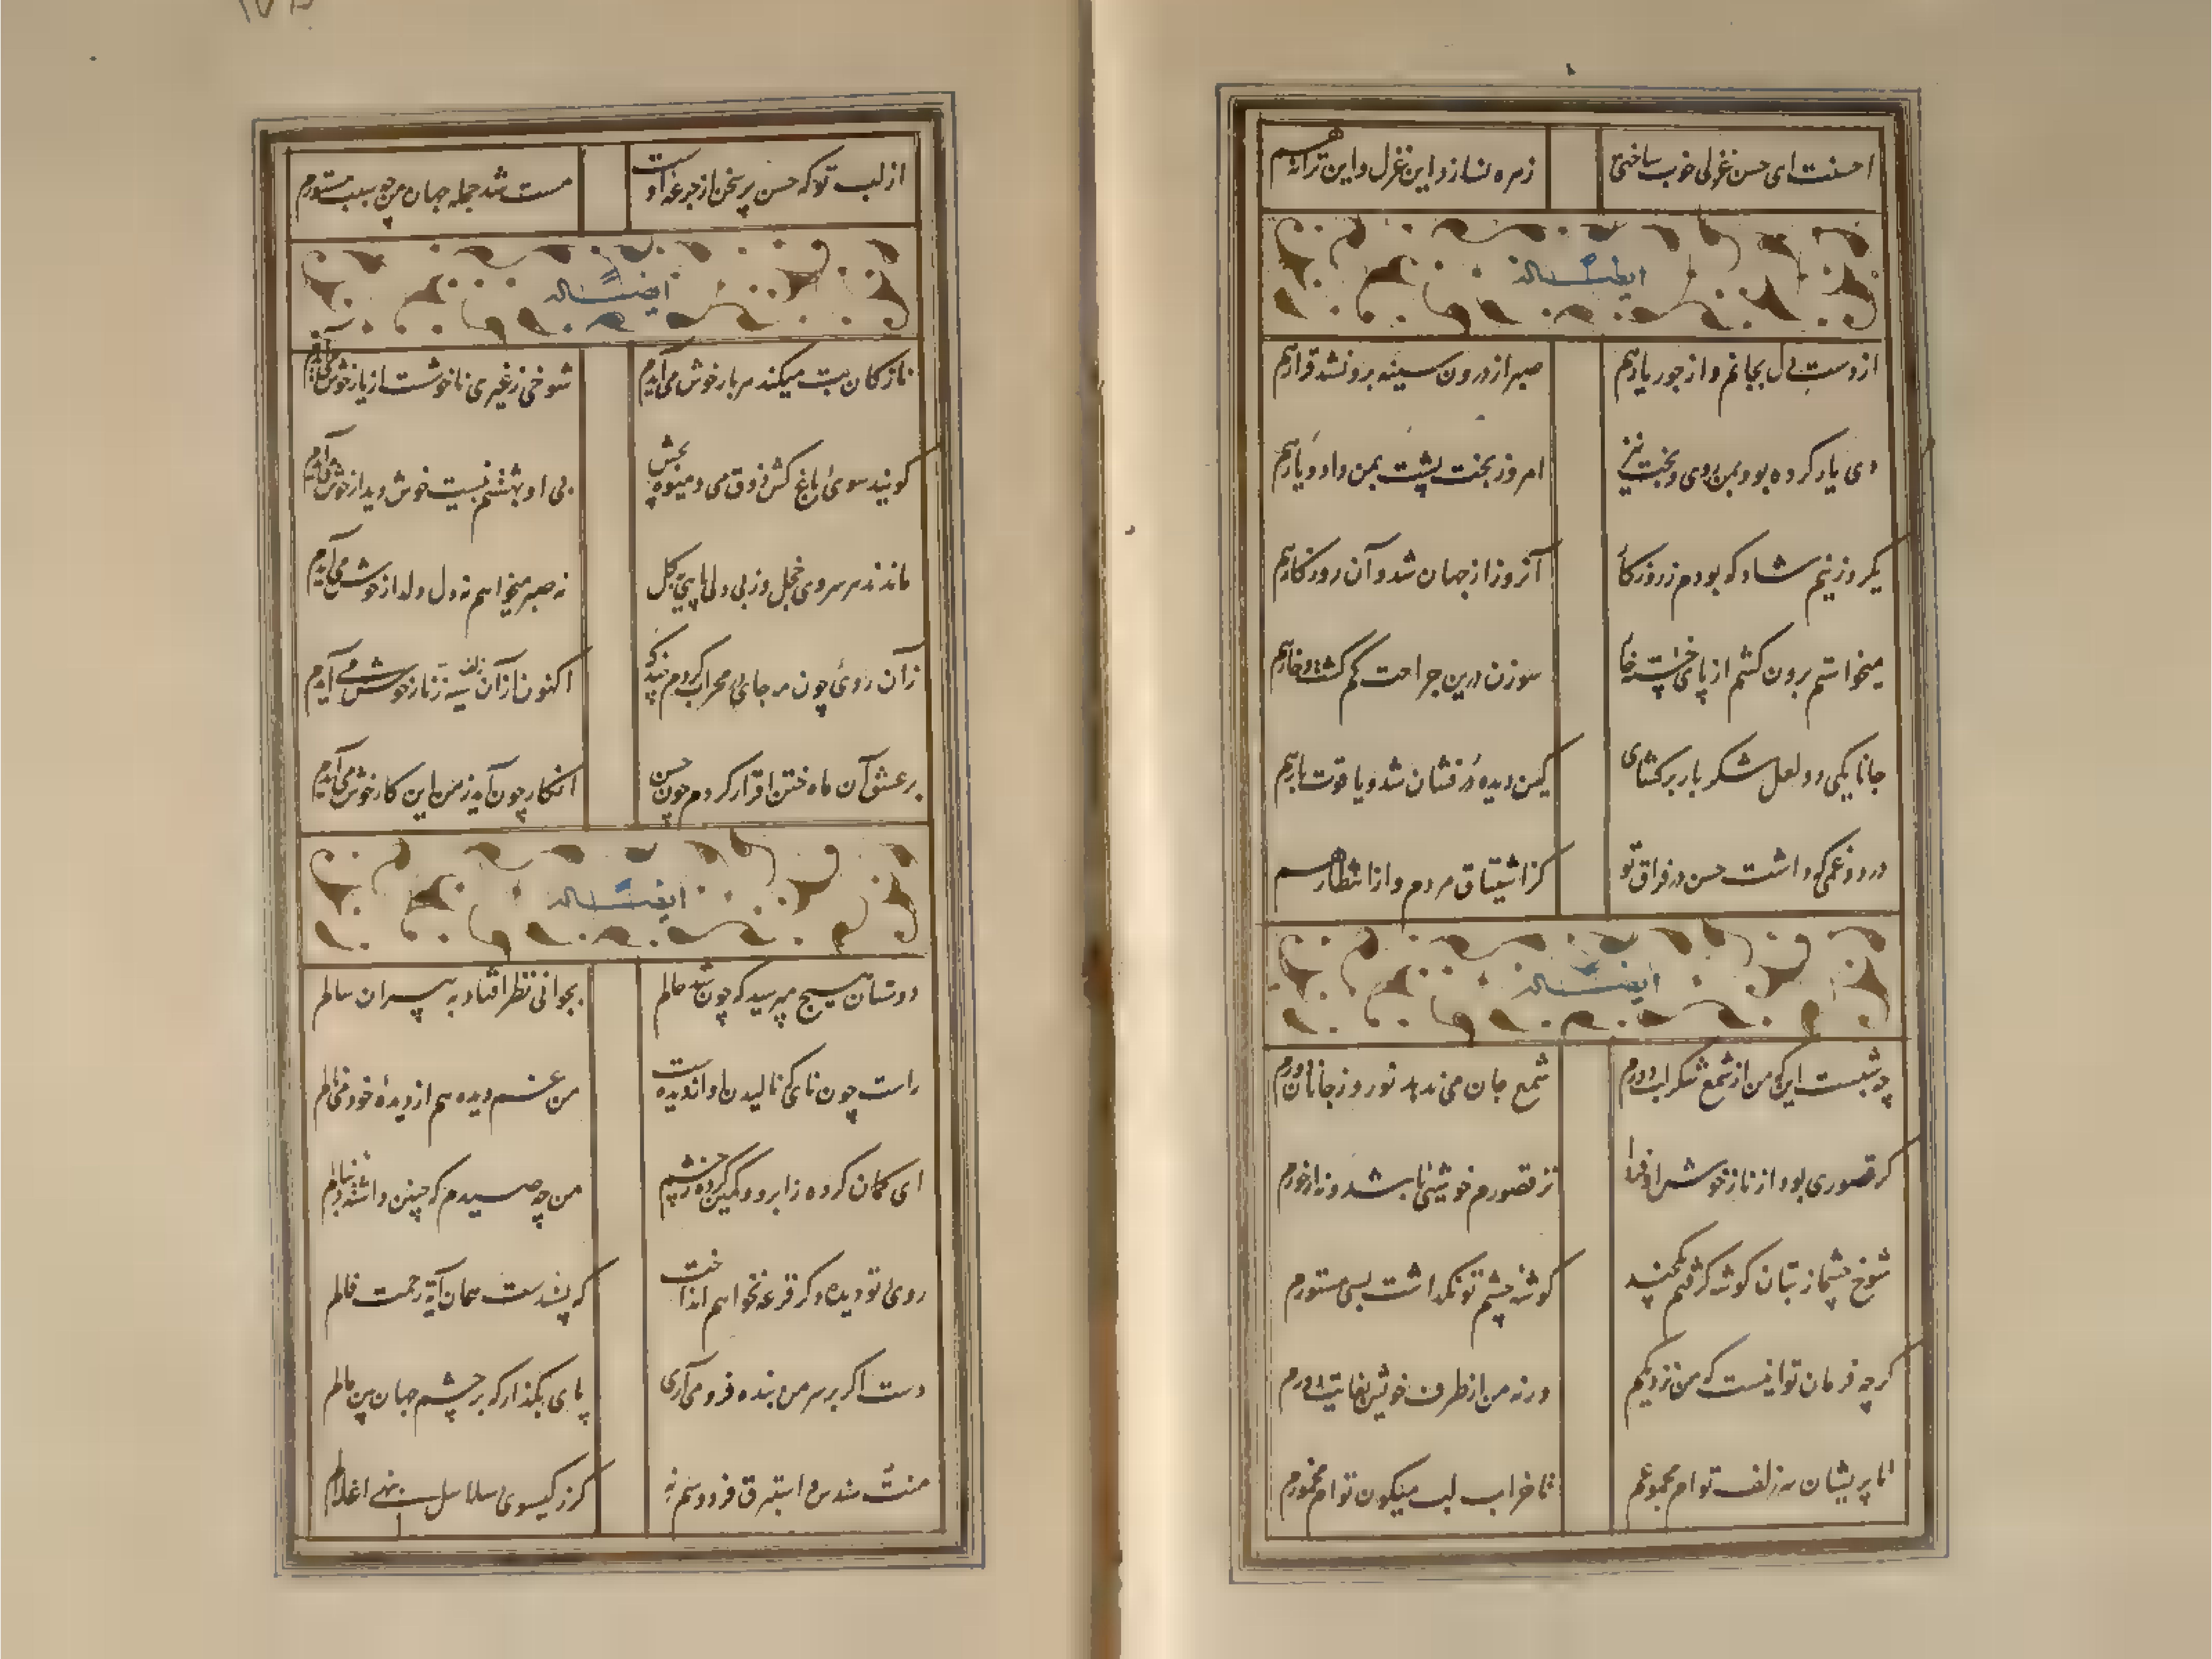 احسنت ای حسن غزلی خوب ساختی
زهره نسازد این غزل و این ترانه هم
ایضاً له
از دست دل بجانم و از جور یار هم
صبر از درون سینه برون شد قرار هم
دی یار کرده بود بمن روی و بخت نیز
امروز بخت پشت بمن داد و یار هم
یکروز نیم شاد که بودم ز روزگار
آنروز از جهان شد و آن روزگار هم
میخواستم برون کشم از پای خسته خار
سوزن درین جراحت گم گشت و خار هم
جانا یکی دو لعل شکر بار برکشای
کین دیده در فشان شد و یاقوت بار هم
درد و غمی که داشت حسن در فراق تو
کز اشتیاق مردم و از انتظار هم
ایضاً له
چه شبست این که من از شمع شکر لب دورم
شمع جان می ندهد نور و ز جانان دورم
کر قصوری بود از ناز خوش او ما را
نز قصورم خوشیی باشد و نه از خورم
شوخ چشما ز بتان کوشه کرفتم لیکن
کوشهٔ چشم تو نکذاشت بسی مستورم
کرچه فرمان تو اینست که من نزدیکم
ورنه من از طرف خویش بغایت دورم
تا پریشان سر زلف توام مجموعم
تا خراب لب میکون توام مخمورم
از لب تو که حسن پر سخن از جرعه اوست
مست شد جمله جهان من چه سبب مستورم
ایضاً له
نازکان بت میکند هر بار خوش می آیدم
شوخی ز غیری ناخوشست از یار خوش می آیدم
کویند سوی باغ کش ذوق می و میوه بچش
بی او بهشتم نیست خوش دیدار خوش می آیدم
ماندند هر سروی خجل وز بی دلی پا بی بکل
نه صبر میخواهم نه دل دلدار خوش می آیدم
زآن روی چون مه جای محراب کردم چند که
اکنون از آن زلف سیه زنار خوش می آیدم
بر عشق آن ماه ختن اقرار کردم چون حسن
انکار چون آید ز من این کار خوش می آیدم
ایضاً له
دوستان هیچ مپرسید که چون شد حالم
بجوانی نظر افتاد به پیران سالم
راست چون نای که نالیدن او از دیده است
من غم دیده هم از دیدهٔ خود می نالم
ای کمان کرده ز ابرو و کمین کرده ز چشم
من چه صیدم که چنین داشته در دنبالم
روی تو دیدم و کر قرعه نخواهم انداخت
که پسندست همان آیهٔ رحمت فالم
دست اکر بر سر من بنده فرو می آری
پای بکذار که بر چشم جهان بین مالم
منت سندس و استبرق فردوسم نه
کر ز کیسوی سلاسل بنهی اغلالم